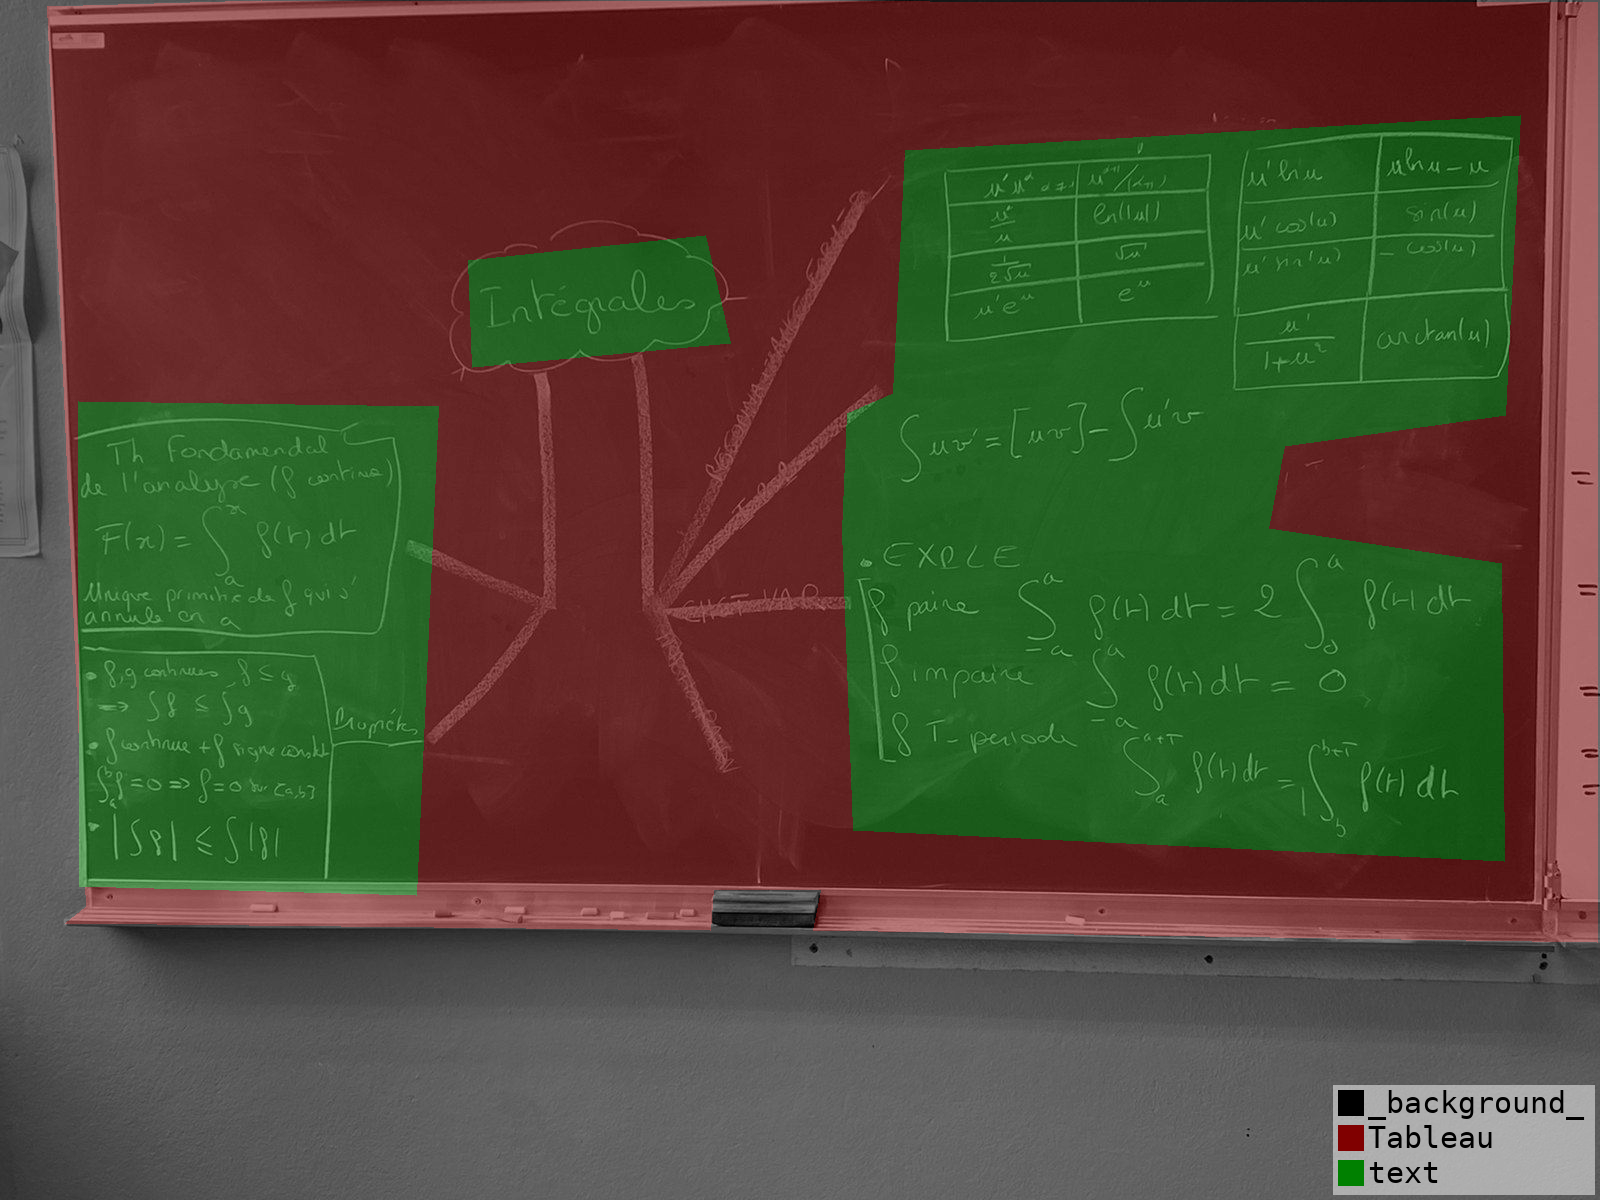 Intégrales
Th Fondamental
de l'analyse (f continue)
F(x) = ∫_a^x f(t) dt
Unique primitive de f qui s'
annule en a
• f, g continues, f ≤ g
⇒ ∫f ≤ ∫g
• f continue + f signe constt
∫_a^b f = 0 ⇒ f = 0 sur [a,b]
• |∫f| ≤ ∫|f|
Propriétés
I.P.P
CHGT VAR
u'u^α α≠-1 u^(α+1)/(α+1)
u'/u ln(|u|)
1/(2√u) √u
u'e^u e^u
u' ln u u ln u - u
u' cos(u) sin(u)
u' sin(u) - cos(u)
u'/(1+u²) arctan(u)
∫uv' = [uv] - ∫u'v
• EXPLE
f paire ∫_{-a}^a f(t) dt = 2 ∫_0^a f(t) dt
f impaire ∫_{-a}^a f(t) dt = 0
f T-periode ∫_a^{a+T} f(t) dt = ∫_b^{b+T} f(t) dt
_background_
Tableau
text